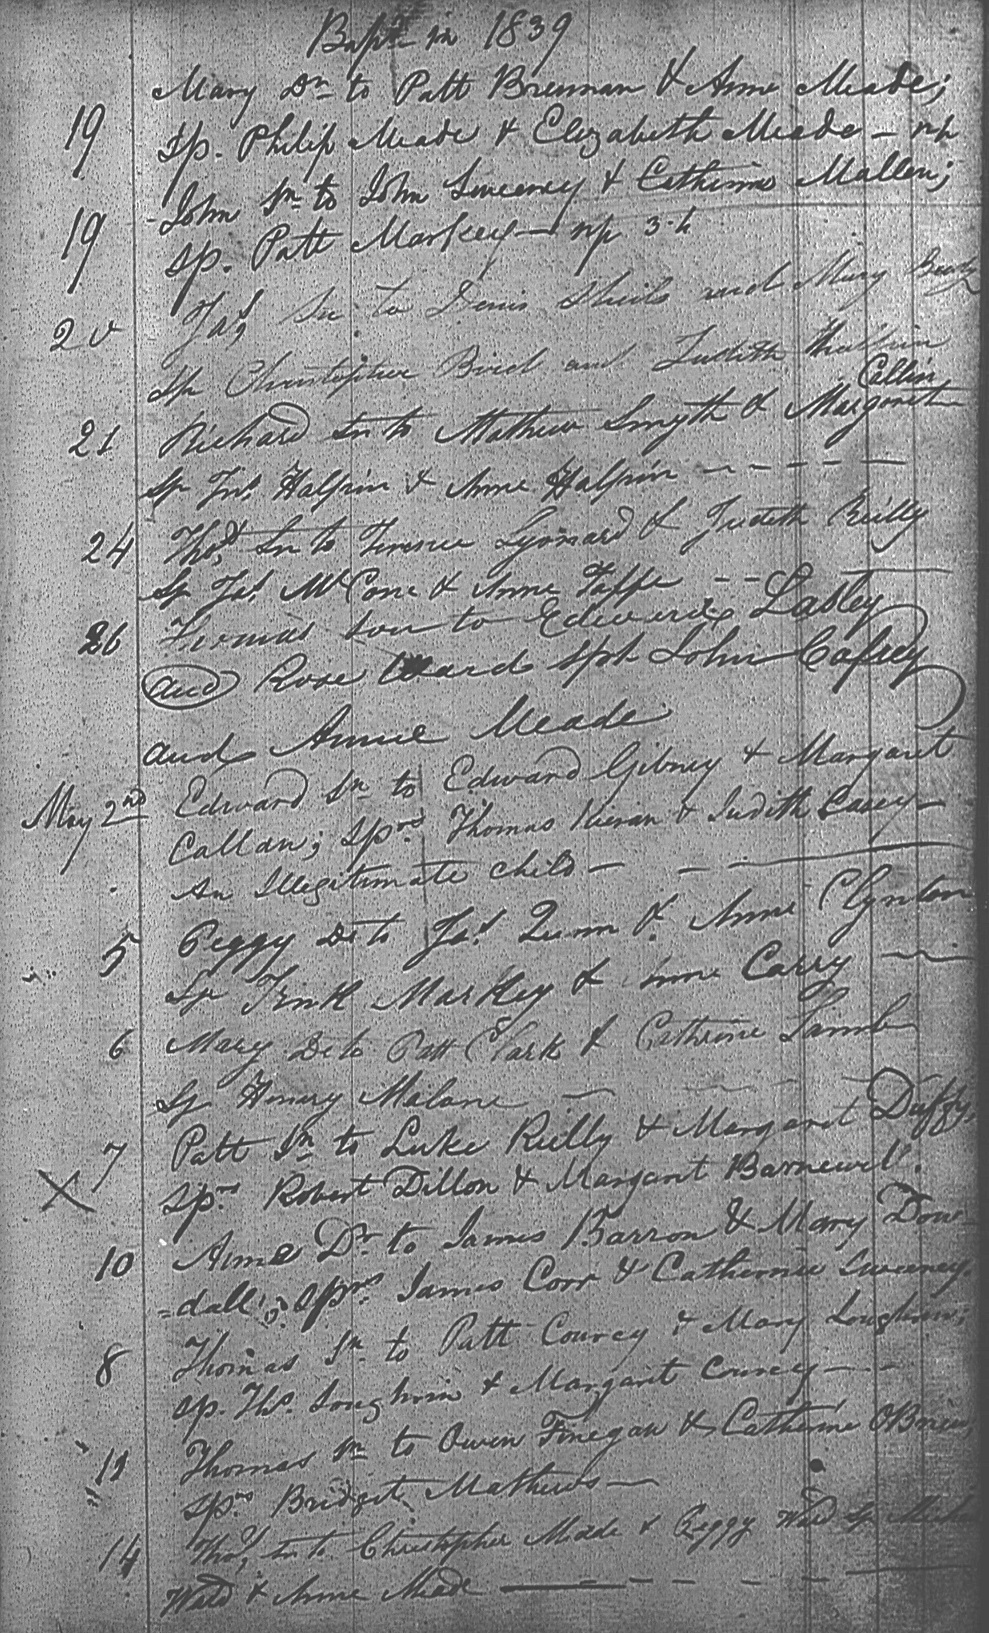 Bapts in 1839
Mary Dr to Patt Brennan & Anne Meade;
19 Sp. Philip Meade & Elizabeth Meade — np
John Sn to John Sweeney & Catherine Mallen;
19 Sp. Patt Markey — np 3-h
20 Jas Sn to Denis Sheils and Mary
Sp Christopher Bird and Judith
Callin
21 Richard Sn to Mathew Smyth & Margaret
Sp Jns Halpin & Anne Halpin - - - - -
24 Thos Sn to Terence Lynard & Judith Reilly
Sp Jas McCone & Anne Taffe - -
26 Thomas Son to Edward Lasley
and Rose Ward Sps John Cafrey
and Annie Meade
May 2nd Edward Sn to Edward Gibney & Margaret
Callan; Sprs Thomas Kieran & Judith Casey
An Illegitimate child —
5 Peggy Dr to Jas Quinn & Anne Clynton
Sp Frank Markey & Anne Carry
6 Mary Dr to Patt Clark & Cathrine Lamb
Sp Henery Malone
7 Patt Sn to Luke Reilly & Margaret Duffy,
X Sprs Robert Dillon & Margaret Barnewel.
10 Anne Dr to James Barron & Mary Dow-
=dall; Sprs James Corr & Catherine Sweeney.
8 Thomas Sn to Patt Courcy & Mary Loughrin;
Sp. Ths. Loughrin & Margaret Courcy —
11 Thomas Sn to Owen Finegan & Catherine OBrien,
Sprs Bridget Mathews —
14 Thos, Sn to Christopher Meade & Peggy Ward Sp
Ward & Anne Meade